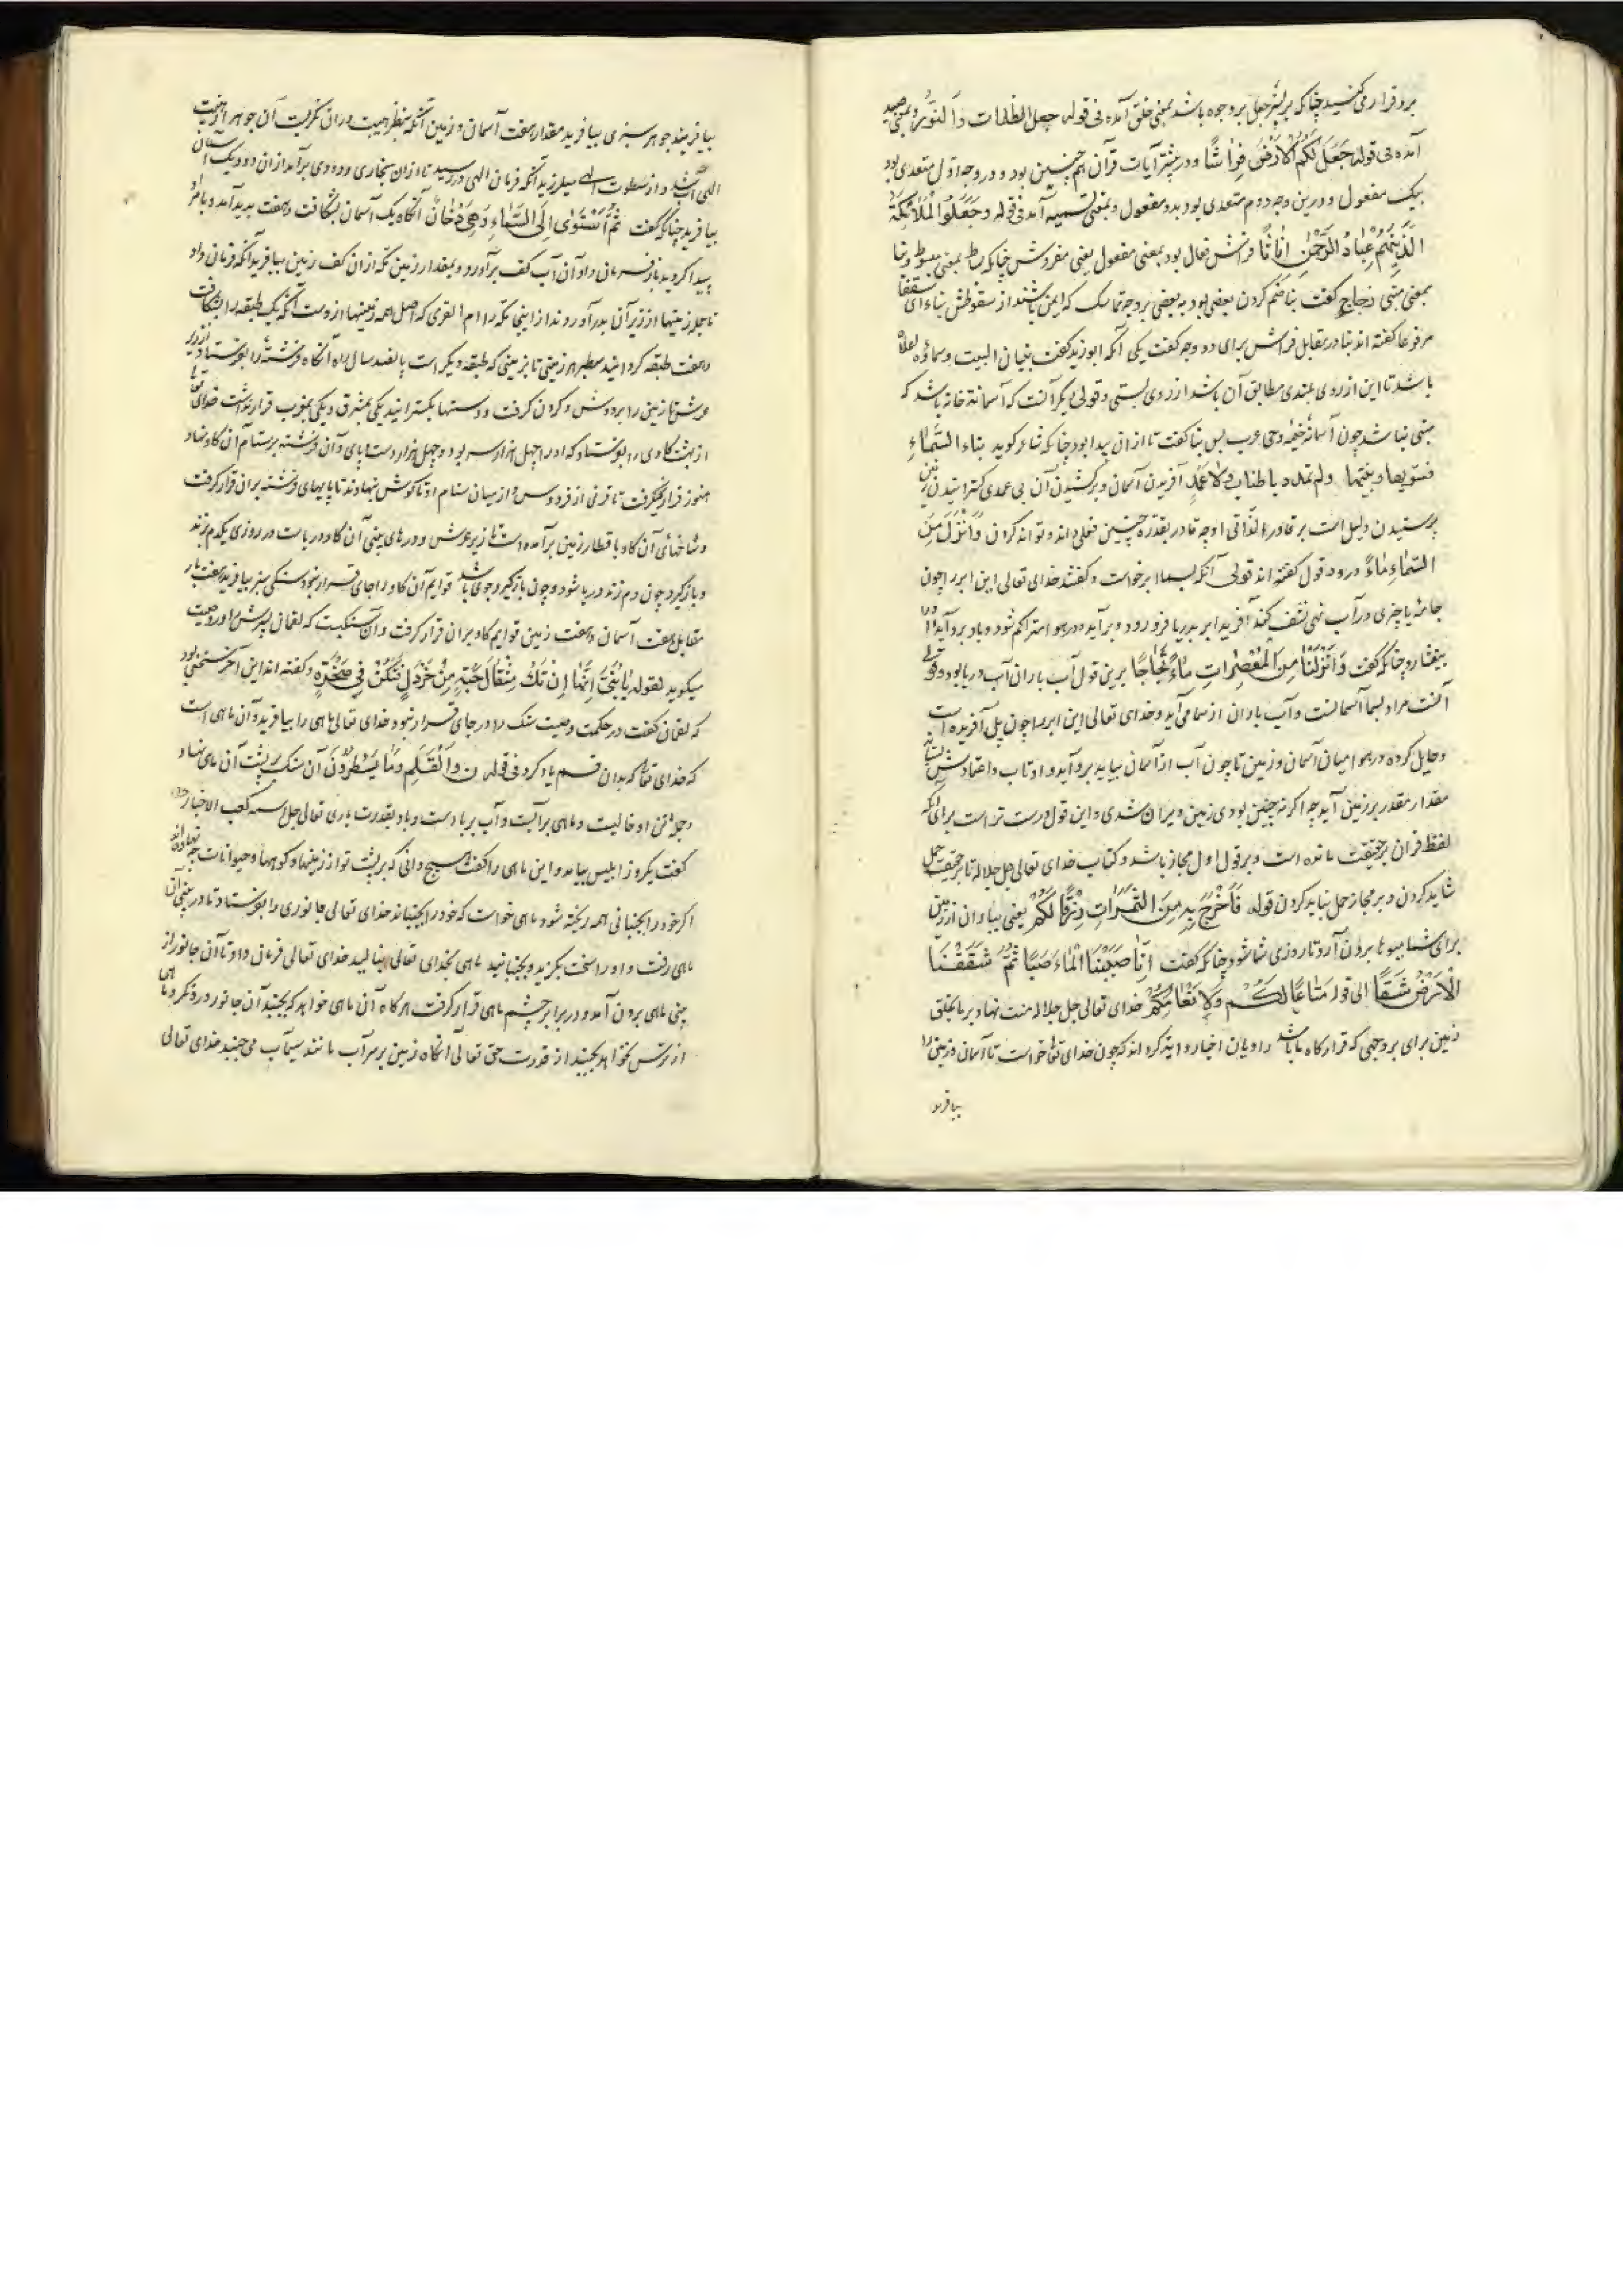 برو قرار می کنید چنانکه بر بشر جعل بر وجوه باشد بمعنی خلق آمده فی قوله جعل الظلمات والنور و بمعنی صیر
آمده فی قوله جعل لکم الارض فراشا و در بیشتر آیات قرآن هم چنین بود و در وجه اول متعدی بود
بیک مفعول و درین وجه دوم متعدی بود بدو مفعول و بمعنی تسمیه آمد فی قوله وجعلوا الملائکة
الذین هم عباد الرحمن اناثا فراش فعال بود بمعنی مفعول یعنی مفروش چنانکه بساط بمعنی مبسوط و بنا
بمعنی مبنی زجاج گفت بنا ضم کردن بعضی بود به بعضی بر وجه تماسک که ایمن باشند از سقوطش بناء ای سقفا
مرفوعا گفته اند بنا در مقابل فراش برای دو وجه گفت یکی آنکه ابو زید گفت بنیان البیت وسماؤه اعلاه
باشد تا این از روی بلندی مطابق آن باشد از روی پستی و قولی دیگر آنست که آسمانه خانه باشد که
مبنی نباشد چون آسمانه خیمه وحی عرب پس بنا گفت تا از آن پیدا بود چنانکه شاعر گوید بناء السماء
فسویها وبنیتها ولم تمدد باطناب ولا عمد آفریدن آسمان و برکشیدن آن بی عمدی گسترانیدن زمین
دلیل است بر قادر بالذاتی او چه قادر بقدره چنین فعلی داند و تواند کردن وانزل من
السماء ماء درو دو قول گفته اند قولی آنکه بسما ابر خواست و گفتند خدای تعالی این ابر را چون
جامه یا چیزی در آب نهی نشف کند آفرید ابر بدریا فرو رود و برآید و در هوا متراکم شود و باد برو آید او را
بیفشارد چنانکه گفت وانزلنا من المعصرات ماء ثجاجا برین قول آب باران آب دریا بود و قولی
آنست مراد بسما آسمانست و آب باران از سما می آید و خدای تعالی این ابر را چون پلی آفریده است
و حایل کرده در هوا میان آسمان و زمین تا چون آب از آسمان بیاید برو آید و او تاب و اعتمادش بستاند
مقدار مقدر بر زمین آید چه اگر نه چنین بودی زمین ویران شدی و این قول درست تر است برای آنکه
لفظ قرآن بر حقیقت مانده است و بر قول اول مجاز باشد و کتاب خدای تعالی جل جلاله تا بر حقیقت حمل
شاید کردن و بر مجاز حمل نباید کردن قوله فاخرج به من الثمرات رزقا لکم یعنی بباران از زمین
برای شما میوها برون آرد تا روزی شما شود چنانکه گفت انا صببنا الماء صبا ثم شققنا
الارض شقا الی قوله متاعا لکم ولانعامکم خدای تعالی جل جلاله منت نهاد بر ما بخلق
زمین برای بر وجهی که قرارگاه ما باشد راویان اخبار روایة کرده اند که چون خدای تعالی خواست تا آسمان و زمین را
بیافریند
بیافریند جوهر سبزی بیافرید مقدار هفت آسمان و زمین آنگه بنظر هیبت در آن نگریست آن جوهر از هیبت
الهی آب شد و از سطوت الهی میلرزید آنگه فرمان الهی در رسید تا از آن بخاری و دودی برآمد از آن دود یک آسمان
بیافرید چنانکه گفت ثم استوی الی السماء وهی دخان آنگاه یک آسمان بشکافت و هفت پدید آمد و بامر او
پیدا گردید باز فرمان داد آن آب کف برآورد و بمقدار زمین مکه از آن کف زمین بیافرید آنگه فرمان داد
تا جمله زمینها از زیر آن بدر آوردند از اینجا مکه را ام القری که اصل همه زمینها ازوست آنگه یک طبقه را بشکافت
و هفت طبقه گردانید سطبر هر زمینی تا بزمینی که طبقه دیگر است پانصد سال راه آنگاه فرشته را بفرستاد از زیر
عرش تا زمین را بر دوش و گردن گرفت و دستها بگسترانید یکی بمشرق و یکی بمغرب قرار نداشت خدای تعالی
از بهشت گاوی را بفرستاد که او را چهل هزار سر بود و چهل هزار دست و پای و آن فرشته بر سنام آن گاو نهاد
هنوز قرار نمیگرفت تا قرنی از فردوس از میان سنام او تا گوش نهادند تا پایهای فرشته بران قرار گرفت
و شاخهای آن گاو با قطار زمین برآمده است تا زیر عرش و در های بینی آن گاو دریا است در روزی یکدم بزند
و باز گیرد چون دم زند دریا شود و چون باز گیرد جوی باشد قوایم آن گاو را جای قرار نبود سنگی سبز بیافرید هفت بار
مقابل هفت آسمان و هفت زمین قوایم گاو بران قرار گرفت و آن سنگیست که لقمان پسرش را وصیت
میگوید لقوله یا بنی انها ان تک مثقال حبة من خردل فتکن فی صخرة و گفته اند این آخر سخنی بود
که لقمان گفت در حکمت و وصیت سنگ را در جای قرار نبود خدای تعالی ماهی را بیافرید و آن ماهی است
که خدای تعالی که بدان قسم یاد کرد فی قوله ن والقلم وما یسطرون آن سنگ بر پشت آن ماهی نهاد
و جمله تن او خالیست و ماهی بر آبست و آب بر باد ست و باد بقدرت باری تعالی جل اسمه کعب الاخبار
گفت یکروز ابلیس بیامد و این ماهی را گفت هیچ دانی که بر پشت تو از زمینها و کوهها و حیوانات چه نهاده اند
اگر خود را بجنبانی همه ریخته شود ماهی خواست که خود را بجنباند خدای تعالی جانوری را بفرستاد تا در بینی آن
ماهی رفت و او را سخت بگزید و بجنبانید ماهی بخدای تعالی بنالید خدای تعالی فرمان داد تا آن جانور از
بینی ماهی برون آمد و در برابر چشم ماهی قرار گرفت هرگاه آن ماهی خواهد که بجنبد آن جانور درو نگرد و ماهی
از ترس نتواند بجنبد از قدرت حق تعالی آنگاه زمین بر سر آب مانند سیماب می جنبید خدای تعالی